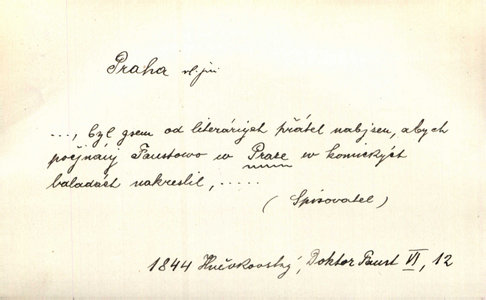 Praha vl. jm.
...., byl gsem od literárnjch přátel nabjzen, abych
počjnánj Faustowo w Praze w komických
baladách nakreslil, .....
( Spisovatel )
1844 Hněvkovský, Doktor Faust VI, 12